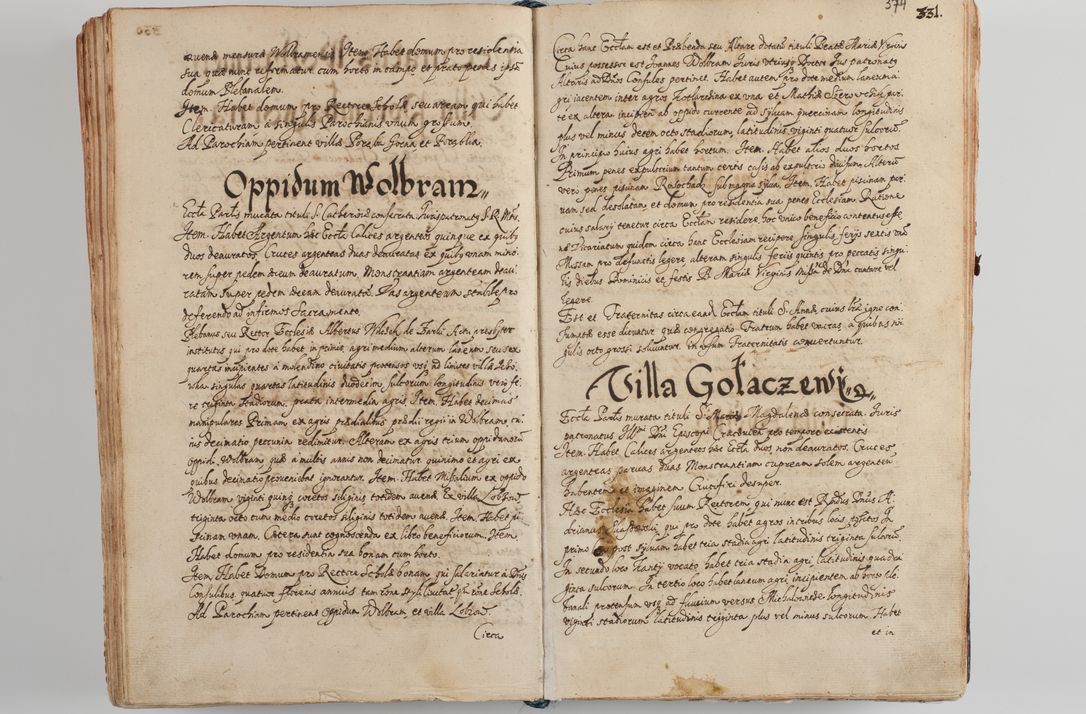 auenæ mensuræ Wolbramensis. Item Habet domum pro residentia
sua quæ nunc reformatur cum horto in campo, et prato penes ipsam
domum Plebanalem.
Item Habet domum pro Rectore Scholæ, seu aream qui habet
Clericaturam à singulis Parochianis unum grossum.
Ad Parochiam pertinent villæ Poręba Gorna et
Oppidum Wolbram,,
Eccła Parlis murata tituli S. Catherinæ consecrata Jurispatronatus S. R. Mtis.
Item Habet Argentum hæc Eccła Calices argenteos quinque ex quibus
duos deauratos. Cruces argenteas duas deauratas ex quibus unam mino-
rem super pedem æreum deauratum. Monstrantiam argenteam deau-
ratam super pedem æreum deauratum. Vas argenteum stabile pro
deferendo ad infirmos Sacramento.
Plebanus seu Rector Ecclesiæ Albertus presbyter
institutus qui pro dote habet in primis, agri medium alterum laneum seu sex
quartas incipientes à molendino civitatis protensos usq ad limites villæ
singulas quartas latitudinis duodecim sulcorum longitudinis vero fe-
re triginta stadiorum, prata intermedia agris. Item Habet decimas
manipulares Primam ex agris prædialibus prædii regii in Wolbram, cu-
ius decimatio pecunia redimitur. Alteram ex agris trium oppidanorum
oppidi Wolbram quæ à multis annis non decimatur quinimo et agri ex
quibus decimatio proveniebat ignorantur. Item Habet Missalium ex oppido
Wolbram viginti quinq coretos siliginis totidem auenæ. Ex villa Lobzow
triginta octo cum medio coretos siliginis totidem auenæ. Item Habet pi-
scinam unam. Cætera sunt cognoscenda ex libro beneficiorum. Item
Habet domum pro residentia sua bonam cum horto.
Item Habet Domum pro Rectore Scholæ bonam, qui salariatur à Dnis
Consulibus quatuor florenis annuis tam rone quam rone Scholæ.
Ad Parochiam pertinent oppidum Wolbram, et villa Lobzow.
Circa
374 331.
Circa hanc Ecclam est et Præbenda seu Altare dotatum tituli Beatæ Mariæ Virginis
Cuius possessor est Joannes Wolbram Juris utriusq Doctor Jus patronatus
Altaris ad Dnos Consules pertinet. Habet autem pro dote medium laneum a-
gri iacentem inter agros ex una et Mathiæ par-
te ex altera incipien ab oppido currente ad sylvam quercinam longitudinis
plus vel minus decem octo stadiorum, latitudinis viginti quatuor sulcorum.
In principio huius agri habet hortum. Item Habet alios duos hortos
Primum penes expulsorium tantum certis casis ab expulsorio divisum, Alterum
vero penes piscinam sub magna sylva. Item Habet piscinam par-
vam sed desolatam et domum pro residentia sua penes Ecclesiam. Ratione
cuius salarij tenetur circa Ecclam residere, hoc unico beneficio contentus esse
Vicariatum quidem circa hanc Ecclesiam recipere, singulis ferijs sextis unā
Missam pro defunctis legere alteram singulis ferijs quintis pro peccatis singu-
lis diebus Dominicis et festis B. Mariæ Virginis Missam de Dna cantare vel
legere.
Est et Fraternitas circa eand Ecclam tituli S. Annæ cuius igne con-
sumptæ esse dicuntur quæ congregatio Fratrum habet vaccas, à quibus sin-
gulis octo grossi solvuntur. In usum Fraternitatis convertuntur.
Villa Gołaczewi,,
Eccła Parlis murata tituli S. Mariæ Magdalenæ consecrata. Juris
patronatus Illmi Dni Episcopi Cracovien pro tempore existentis
Item. Habet Calices argenteos hæc Eccła duos non deauratos. Cruces
argenteas parvas duas Monstrantiam cupream solem argenteu
habentem et imaginem Crucifixi desuper.
Hæc Ecclesia habet suum Rectorem, qui nunc est Rndus Dnus A-
drianus qui pro dote habet agros in tribus locis In
primo post sylvam habet tria stadia agri latitudinis triginta sulcorum.
In secundo loco vocato habet tria stadia agri latitudinis quadra-
ginta sulcorum. In tertio loco habet laneum agri incipientem ab horto ple-
banali protensum usq ad fluvium versus longitudinis
viginti stadiorum latitudinis triginta plus vel minus sulcorum. Habet
et in